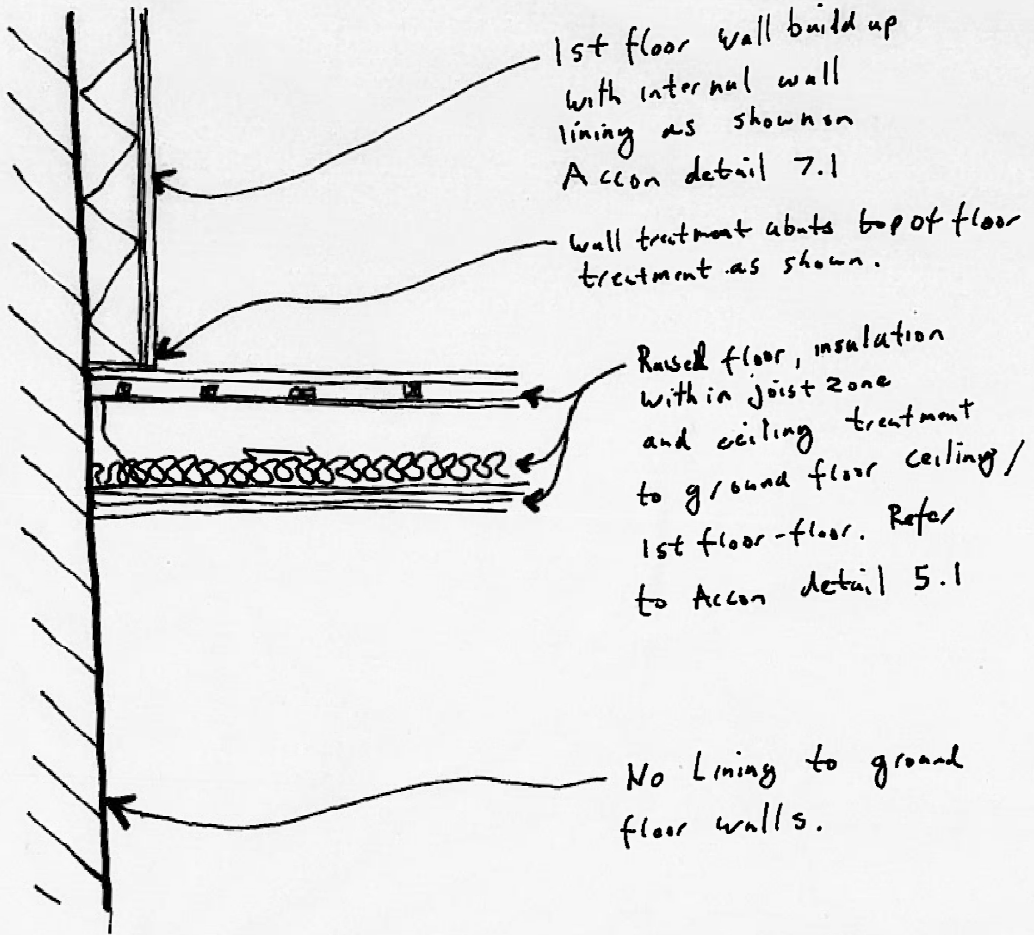 1st floor wall build up
with internal wall
lining as shown on
Accon detail 7.1
wall treatment abuts top of floor
treatment as shown.
Raised floor, insulation
within joist zone
and ceiling treatment
to ground floor ceiling/
1st floor-floor. Refer
to Accon detail 5.1
No Lining to ground
floor walls.